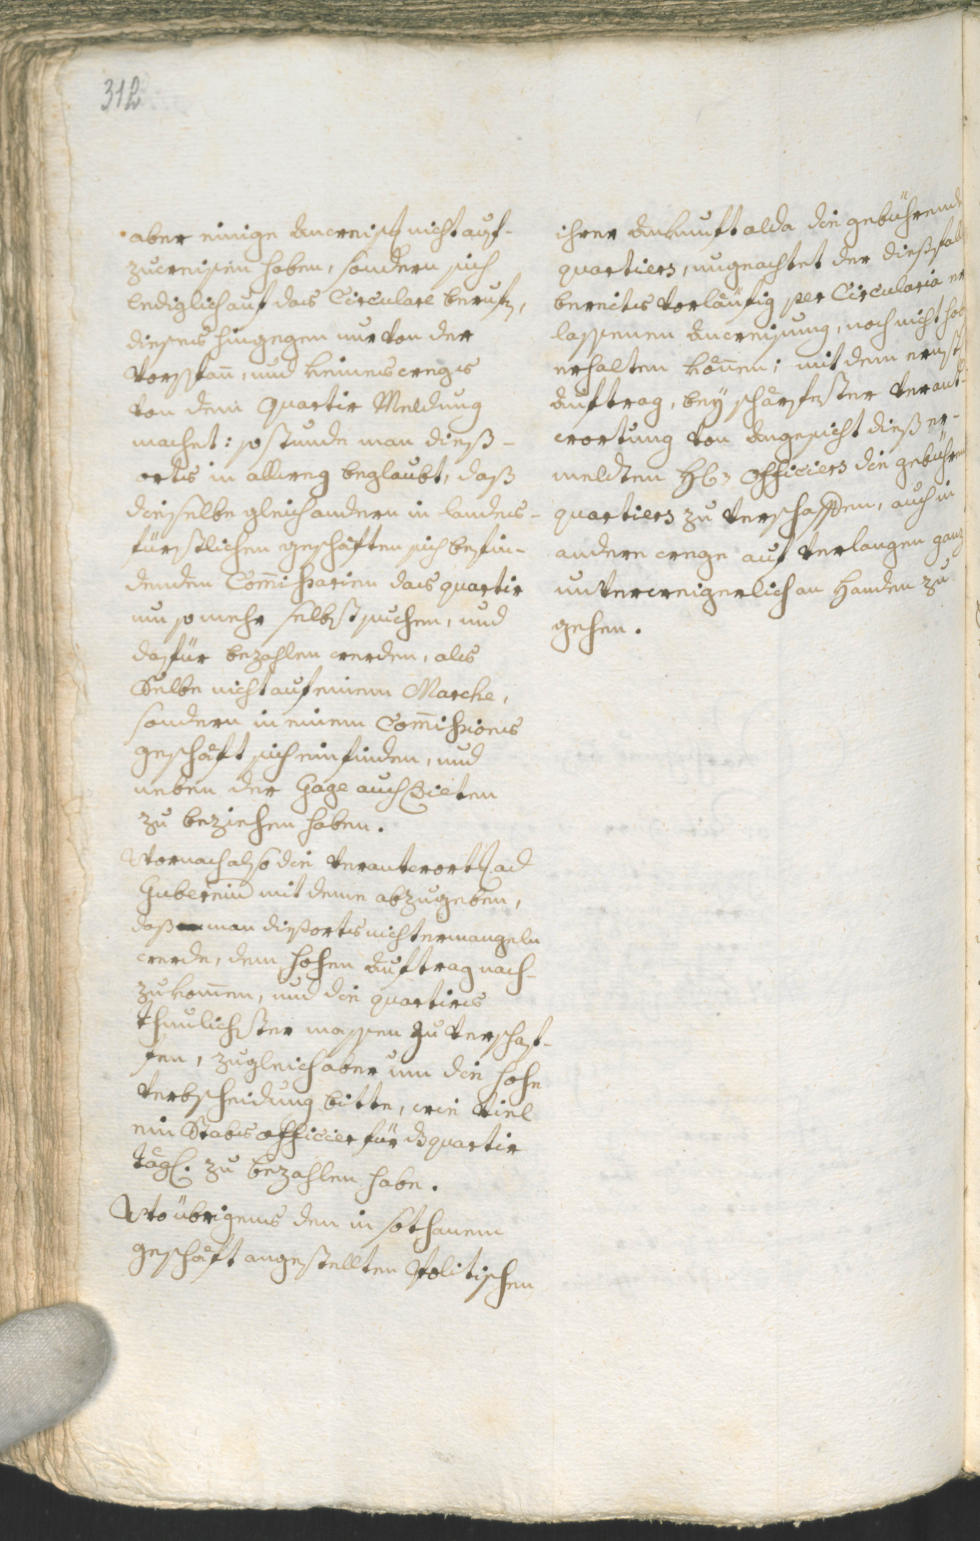 312
aber einige Anweisung nicht auf-
zuweisen haben, sondern sich
lediglich auf das Circulare beruffen,
dieses hingegen nur von der
Vorspann, und keineswegs
von dem Quartir Meldung
machet: so stunde man dieß-
orts in allweg beglaubt, daß
dieselbe gleich andern in landes-
fürstlichen geschäften sich befin-
denden Commissarien das quartir
um so mehr selbst suchen, und
dafür bezahlen werden, als
Selbe nicht auf einem Marche,
sondern in einem Commissions
geschäft sich einfinden, und
neben der Gage auch Dieten
zu beziehen haben.
Wornach also die Verantwort. ad
Gubernium mit deme abzugeben,
daß man dießorts nicht ermangeln
werde, dem hohen Auftrag nach-
zukommen, und die quartirs
thunlichster massen zu verschaf-
fen, zugleich aber um die hohe
Verbscheidung bitte, wie viel
ein Stabs officier für ds quartir
tägl. zu bezahlen habe.
Wo übrigens den in sothanem
geschäft angestellten Politischen
ihrer Ankunft alda die gebührende
quartiers, ungeachtet der dießfalls
bereits vorläufig per Circularia er
lassenen Anweisung, noch nicht
erhalten können; mit dem ernst
Auftrag, bey schärfester Verant-
wortung von Angesicht dieß er-
meldten H. Officiers die gebühren
quartiers zu verschaffen, auch in
andere wege auf Verlangen ganz
unverweigerlich an Handen zu
gehen.